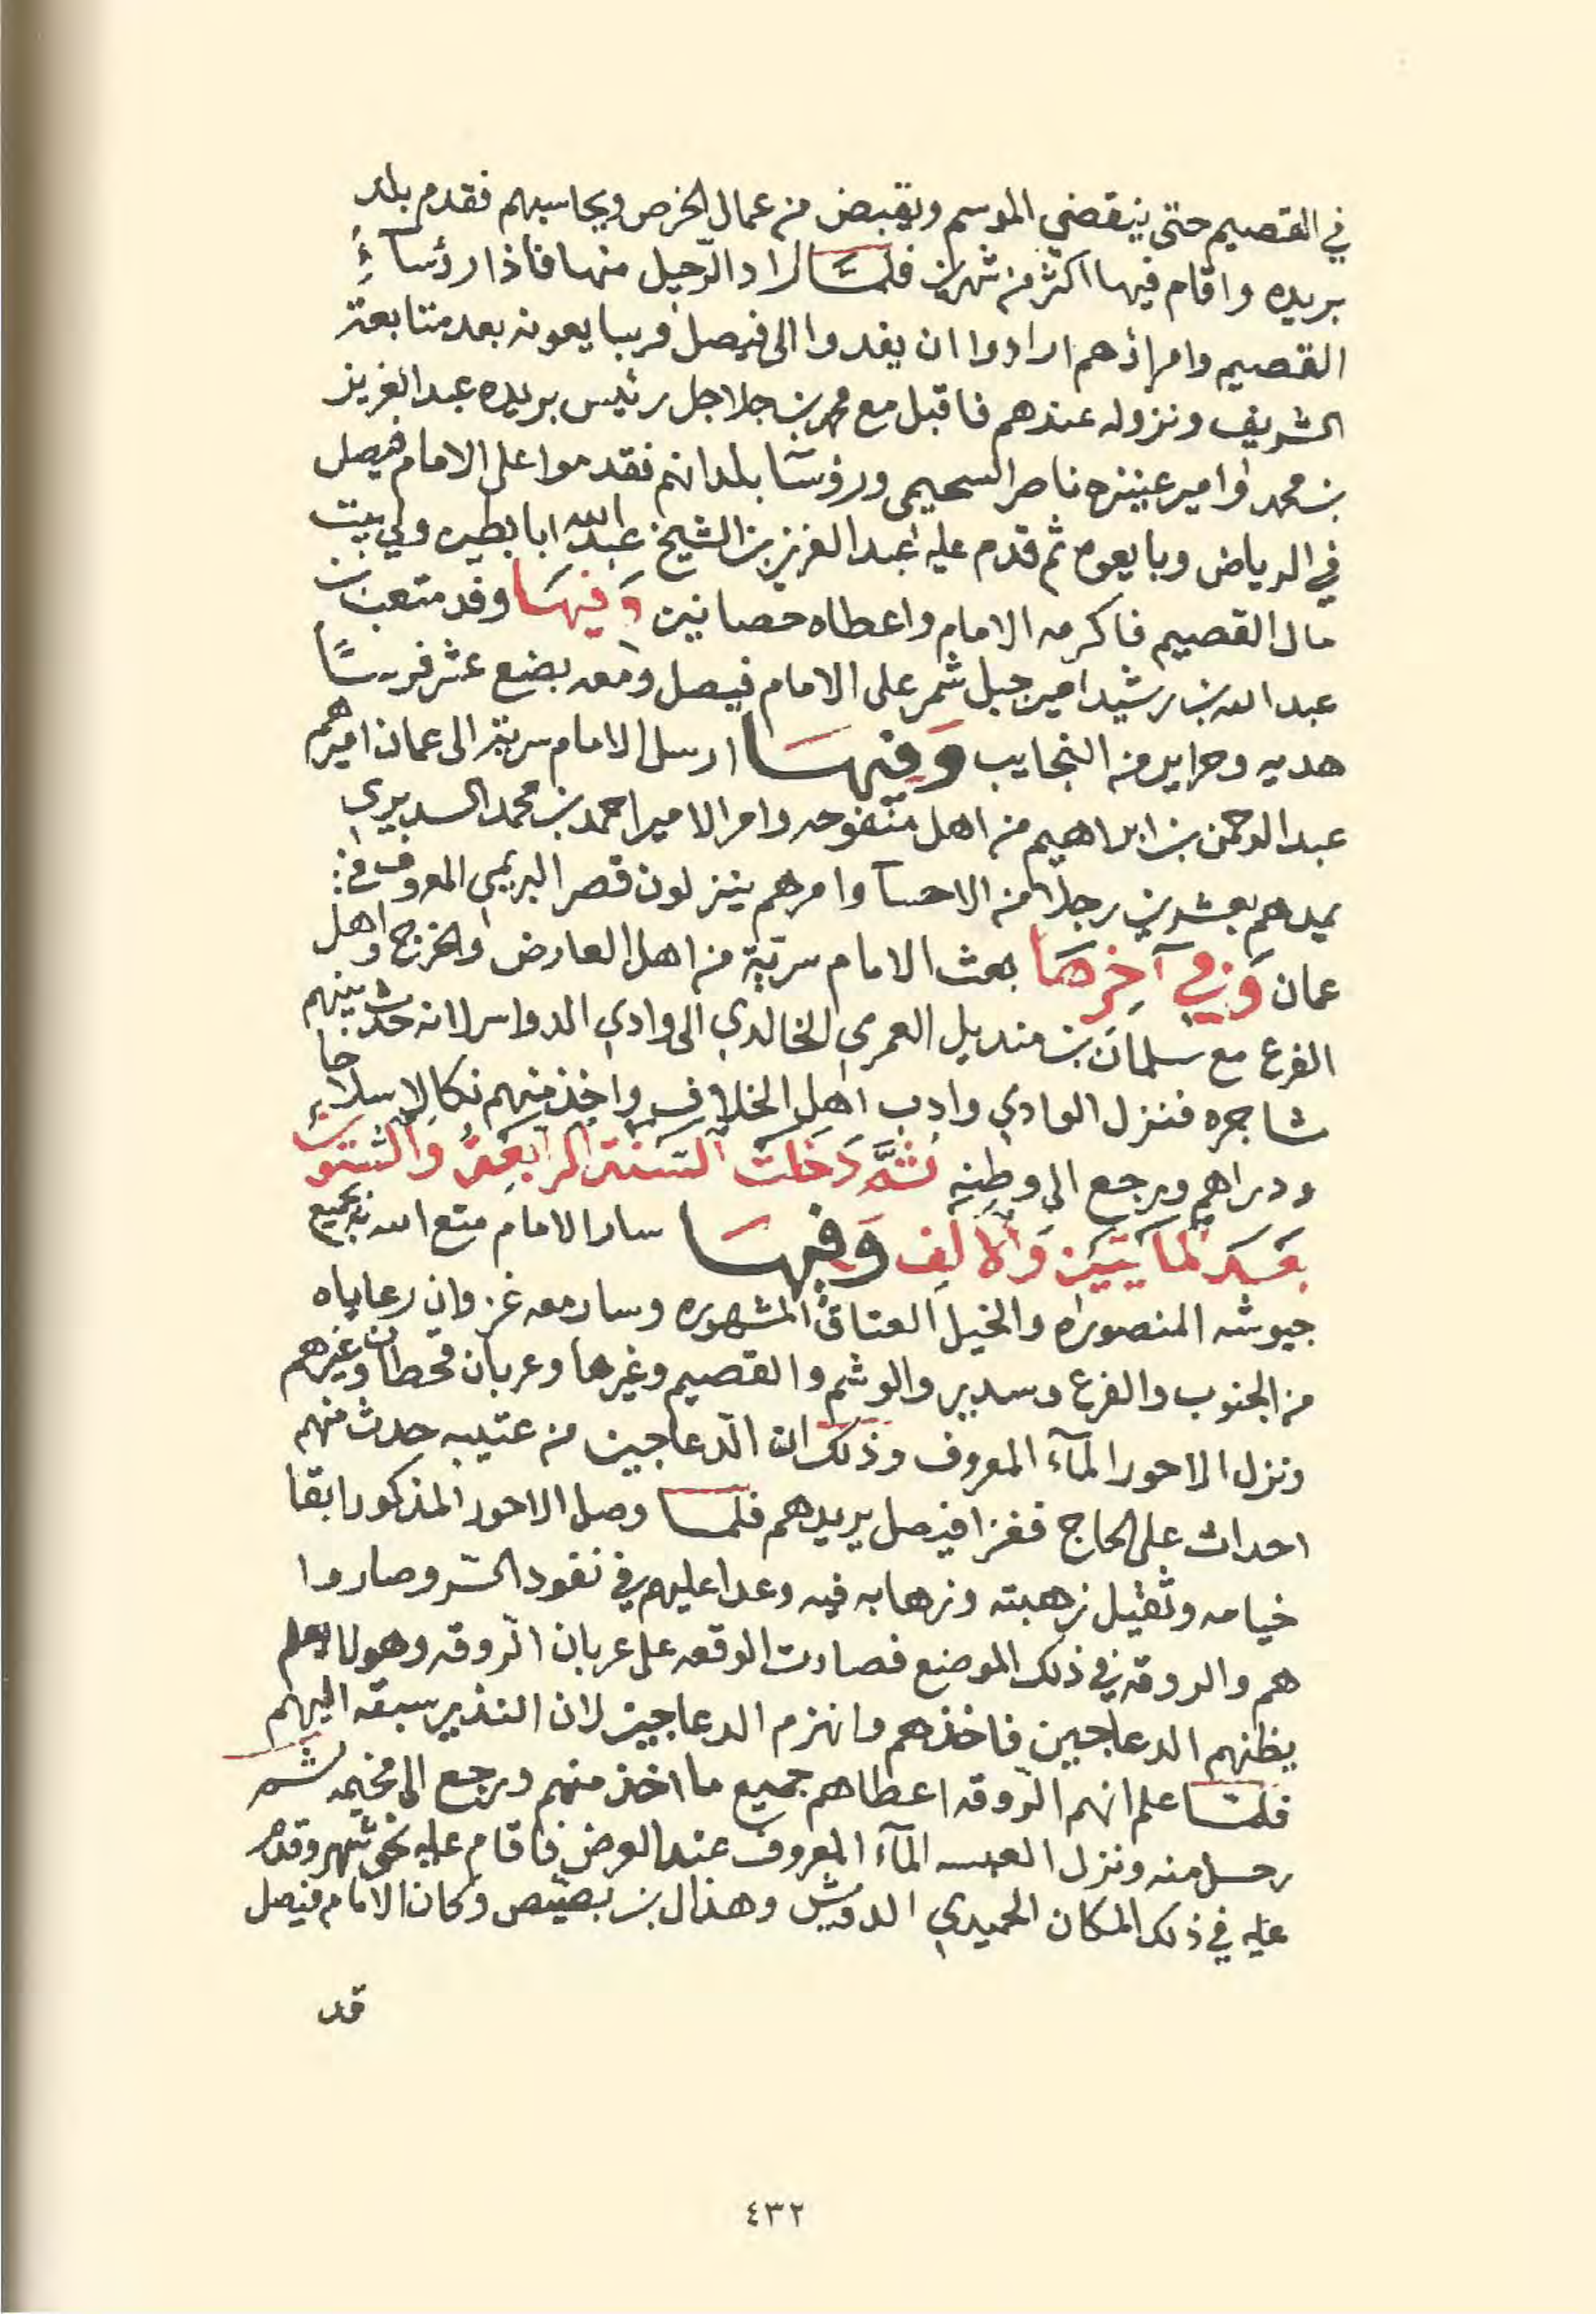 في القصيم حتى ينقضي الموسم ويقبض من عمال الخرص ويحاسبهم فقدم بلد
بريده واقام فيها اكثر من شهرين فلما اراد الرّحيل منها فاذا رؤسآءُ
القصيم وامراؤهم ارادوا ان يفدوا الى فيصل فيبايعونه بعد متابعة
الشريف ونزوله عندهم فاقبل مع محمد بن جلاجل رئيس بريده عبدالعزيز
بن محمد وامير عنيزه ناصر السحيمى ورؤسآ بلدانهم فقدموا على الامام فيصل
في الرياض وبايعوه ثم قدم عليه عبدالعزيز بن الشيخ عبدالله ابابطين وكي بيت
مال القصيم فاكرمه الامام واعطاه حصانين وَفيهَا وفد متعب بن
عبدالله بن رشيد امير جبل شمر على الامام فيصل ومعه بضع عشر فرسًا
هديه وحراير من النجايب وَفيهَا ارسل الامام سرية الى عمان اميرهم
عبدالرحمن بن ابراهيم من اهل منفوحه وامر الامير احمد بن محمد السديري
يمدهم بعشرين رجلا من الاحسآ وامرهم ينزلون قصر البريمي المعروف في
عمان وَفي آخِرهَا بعث الامام سريّة من اهل العارض والخرج واهل
الفرع مع سلمان بن منديل العمرى الخالدي الى وادي الدواسر لانه حدث بينهم
مشاجره فنزل الوادي وادب اهل الخلاف واخذ منهم نكالا سلاحا
ودراهم ورجع الى وطنه ثمَّ دَخَلَت السَنة الرابعَة والستون
بَعدَ المايتَين وَالالف وَفيهَا سار الامام متع الله به بجميع
جيوشه المنصوراه والخيل العتاق المشهوره وسار معه غزوان رعاياه
من الجنوب والفرع وسدير والوشم والقصيم وغيرها وعربان قحطان وغيرهم
ونزل الاحور المآء المعروف وذلك ان الدّعاجين من عتيبه حدث منهم
احداث على الحاج فغزا فيصل يريدهم فلما وصل الاحور المذكور ابقا
خيامه وثقيل زهبته وزهابه فيه وعدا عليهم في نفود السّر وصاروا
هم والروقه في ذلك الموضع فصارت الوقعه على عربان الرّوقه وهو لا يعلم
يظنهم الدعاجين فاخذهم وانهزم الدعاجين لان النذير سبقه اليهم
فلما علم انهم الرّوقه اعطاهم جميع ما اخذ منهم ورجع الى مخيمه ثم
رحل منه ونزل المآء المعروف عند العرض فاقام عليه نحو شهر وقدم
عليه في ذلك المكان الحميدي الدويش وهذال بن بصيّص وكان الامام فيصل
قد
٤٣٢